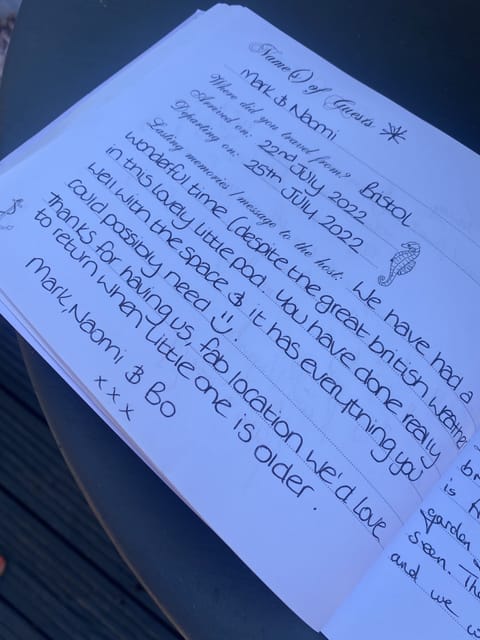 Name(s) of Guests
Mark & Naomi
Where did you travel from? Bristol
Arrived on: 22nd July 2022
Departing on: 25th July 2022
Lasting memories / message to the host: We have had a
wonderful time (despite the great british weather
in this lovely little pod. You have done really
well with the space & it has everything you
could possibly need
Thanks for having us, fab location we'd love
to return when little one is older.
Mark, Naomi & Bo
x x x
is
garden
seen. Th
and we w